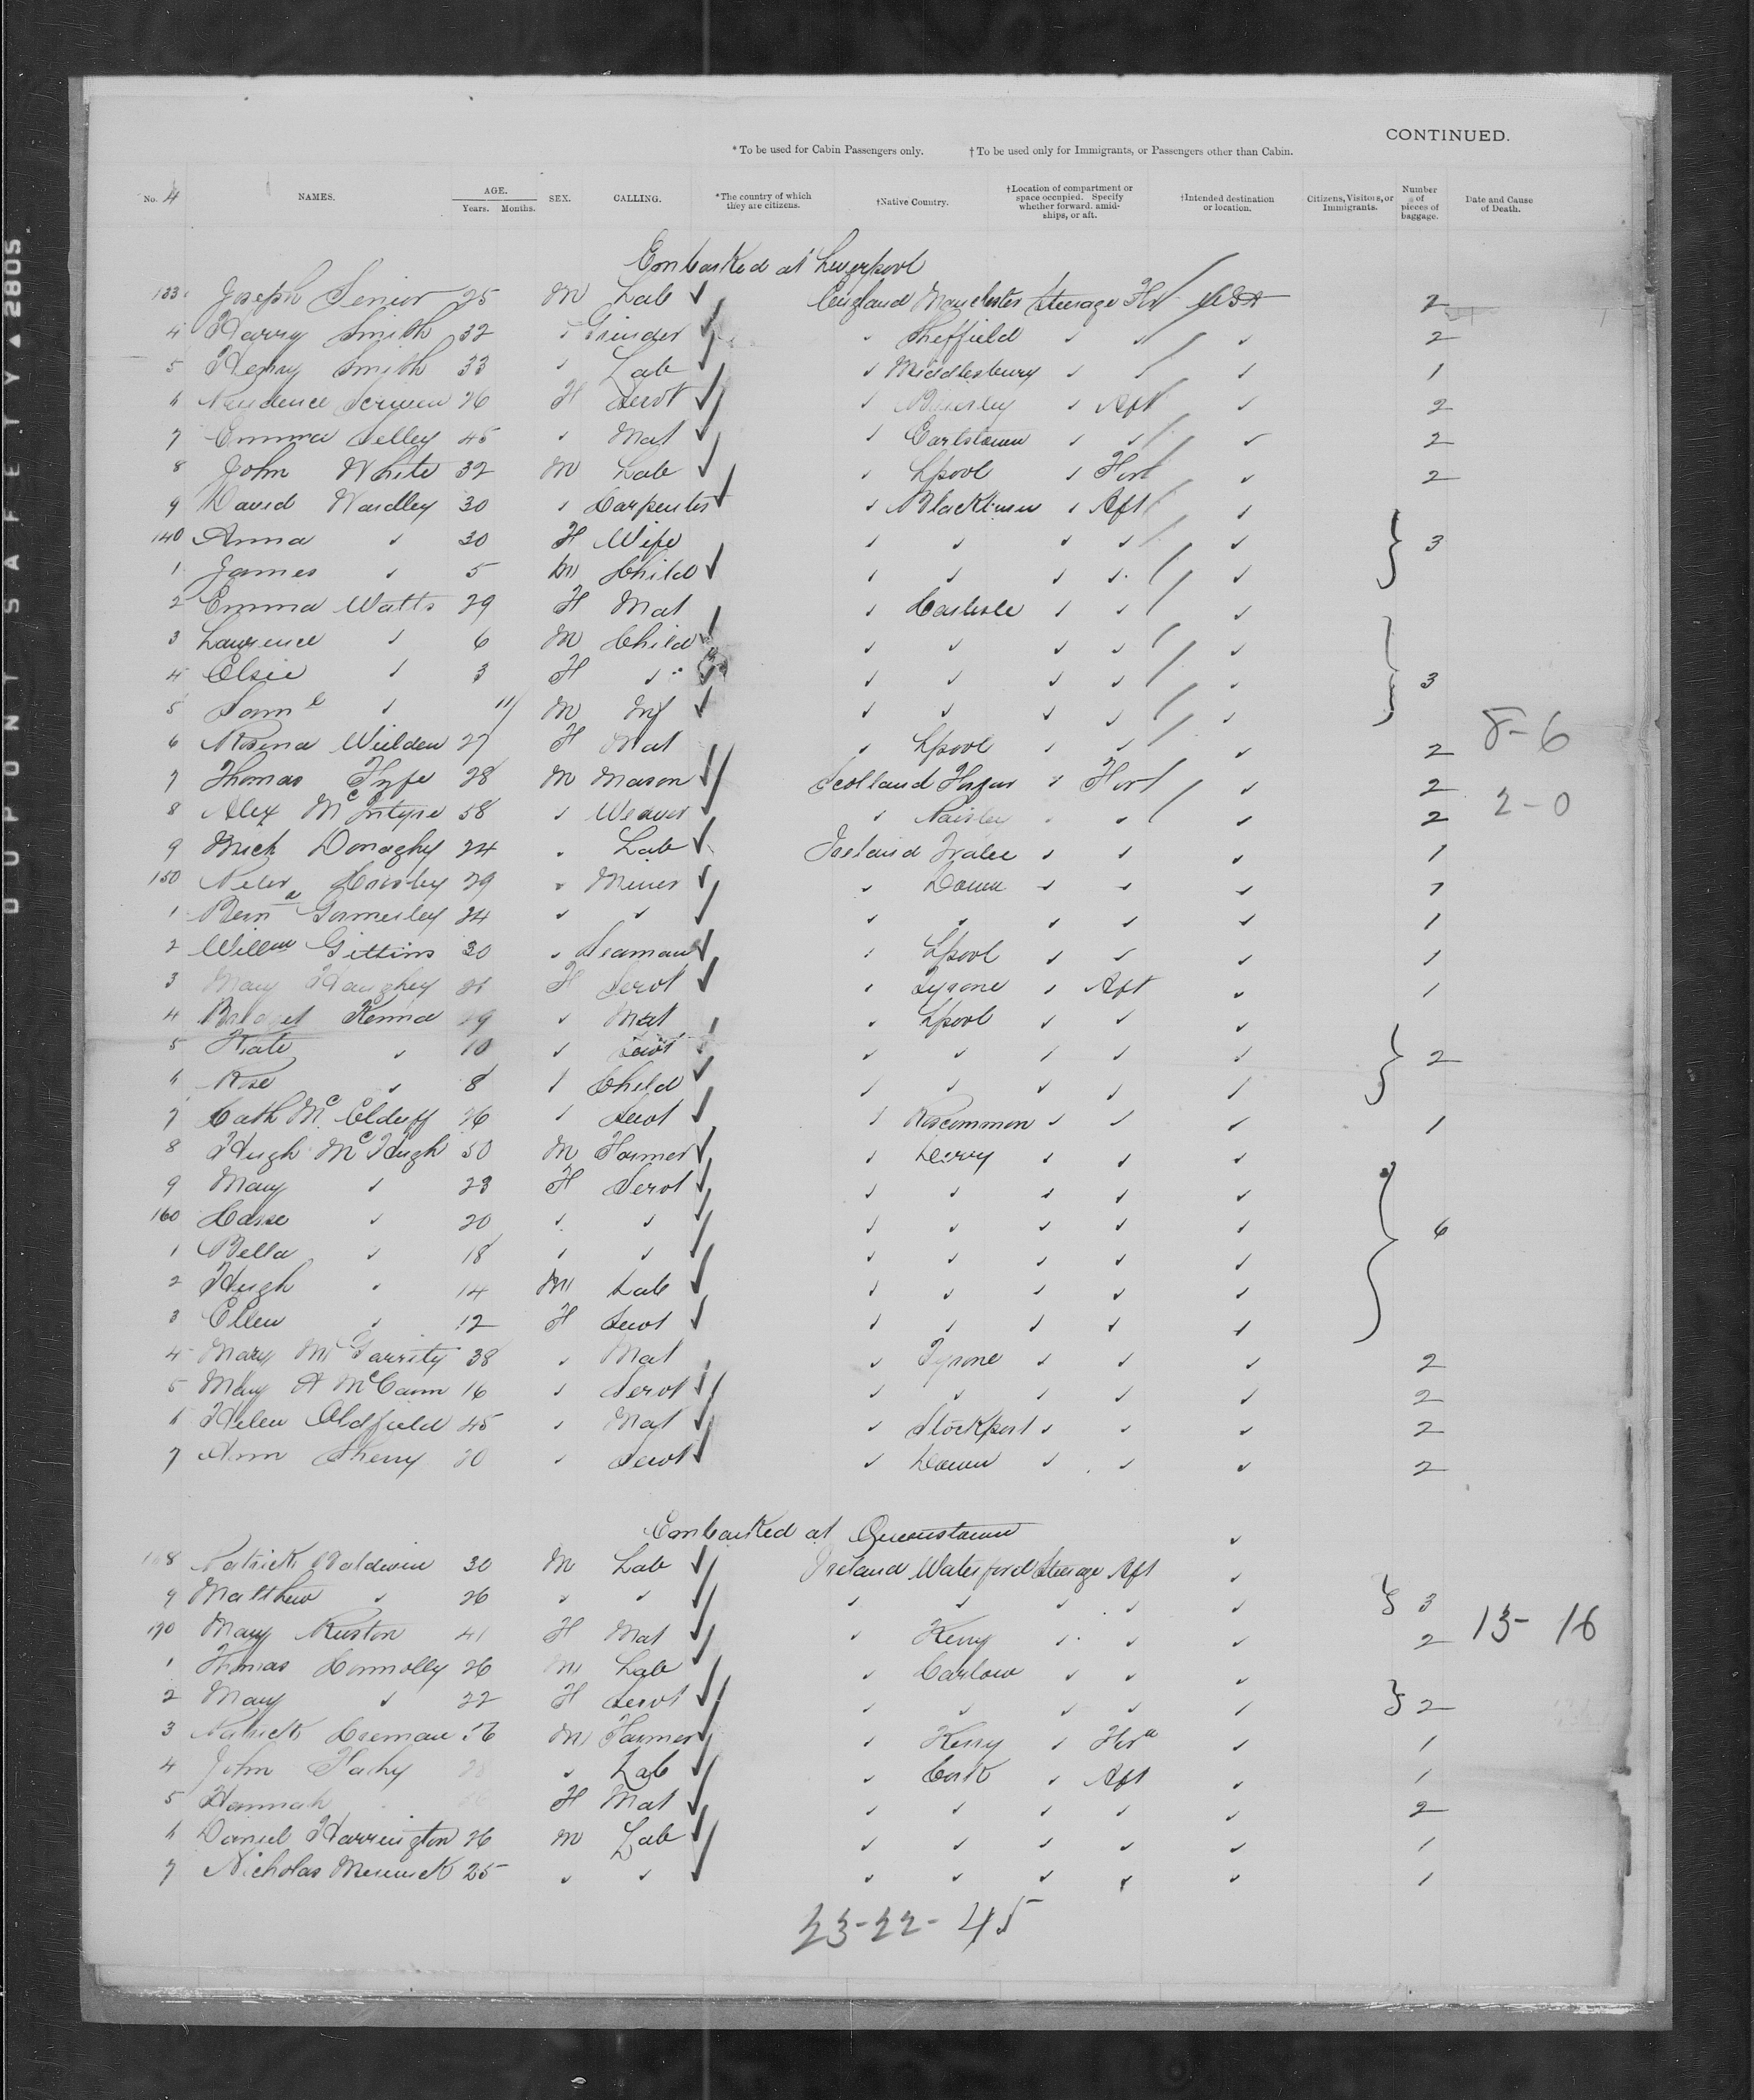 DUPONT SAFETY ▲ 2805
CONTINUED.
* To be used for Cabin Passengers only. † To be used only for Immigrants, or Passengers other than Cabin.
No. 4 NAMES. AGE. Years. Months. SEX. CALLING. *The country of which they are citizens. †Native Country. †Location of compartment or space occupied. Specify whether forward, amidships, or aft. †Intended destination or location. Citizens, Visitors, or Immigrants. Number of pieces of baggage. Date and Cause of Death.
Embarked at Liverpool
133 Joseph Senior 25 M Lab England Manchester Steerage For USA 2
4 Harry Smith 32 " Grinder " Sheffield " " " 2
5 Henry Smith 33 " Lab " Middlesbury " " " 1
6 26 F Servt " " Aft " 2
7 Emma Selley 45 " Mat " Earlstown " " " 2
8 John White 32 M Lab " Lpool " For " 2
9 David Wardley 30 " Carpenter " " Aft "
140 Anna " 30 F Wife " " " " " 3
1 James " 5 M Child " " " " "
2 Emma Watts 29 F Mat " Carlisle " " "
3 Laurence " 6 M Child " " " " "
4 Elsie " 3 F " " " " " " 3
5 Saml " 11 M Inf " " " " "
6 Rosina 27 F Mat " Lpool " " " 2 8-6
7 Thomas Fyfe 28 M Mason Scotland Forfar " For " 2
8 Alex McIntyre 58 " Weaver " Paisley " " " 2 2-0
9 Mick Donaghy 24 " Lab Ireland Tralee " " " 1
150 Peter 29 " Miner " Down " " " 1
1 Bernd Gormerley 24 " " " " " " " 1
2 Willm Gittins 30 " Seaman " Lpool " " " 1
3 Mary Haughey F Servt " Tyrone " Aft " 1
4 Bridget Kenna " Mat " Lpool " " "
5 Kate " 10 " Servt " " " " " 2
6 Rose " 8 " Child " " " " "
7 Cath McElduff 26 " Servt " Roscommon " " " 1
8 Hugh McHugh 50 M Farmer " Derry " " "
9 Mary " 23 F Servt " " " " "
160 " 20 " " " " " " " 6
1 Bella " 18 " " " " " " "
2 Hugh " 14 M Lab " " " " "
3 Ellen " 12 F Servt " " " " "
4 Mary McGarrity 38 " Mat " Tyrone " " " 2
5 Mary A McCann 16 " Servt " " " " " 2
6 Helen Oldfield 45 " Mat " Stockport " " " 2
7 Ann Sherry " Servt " Down " " " 2
Embarked at Queenstown "
168 Patrick Baldwin 30 M Lab Ireland Waterford Steerage Aft "
9 Matthew " 26 " " " " " " " 3
170 Mary Ruston 41 F Mat " Kerry " " " 2 13-16
1 Thomas Connolly 26 M Lab " Carlow " " "
2 Mary " 22 F Servt " " " " " 2
3 Patrick 56 M Farmer " Kerry " Ford " 1
4 John Fahy " Lab " Cork " Aft " 1
5 Hannah F Mat " " " " " 2
6 Daniel Harrington 26 M Lab " " " " " 1
7 Nicholas 25 " " " " " " " 1
23-22-45